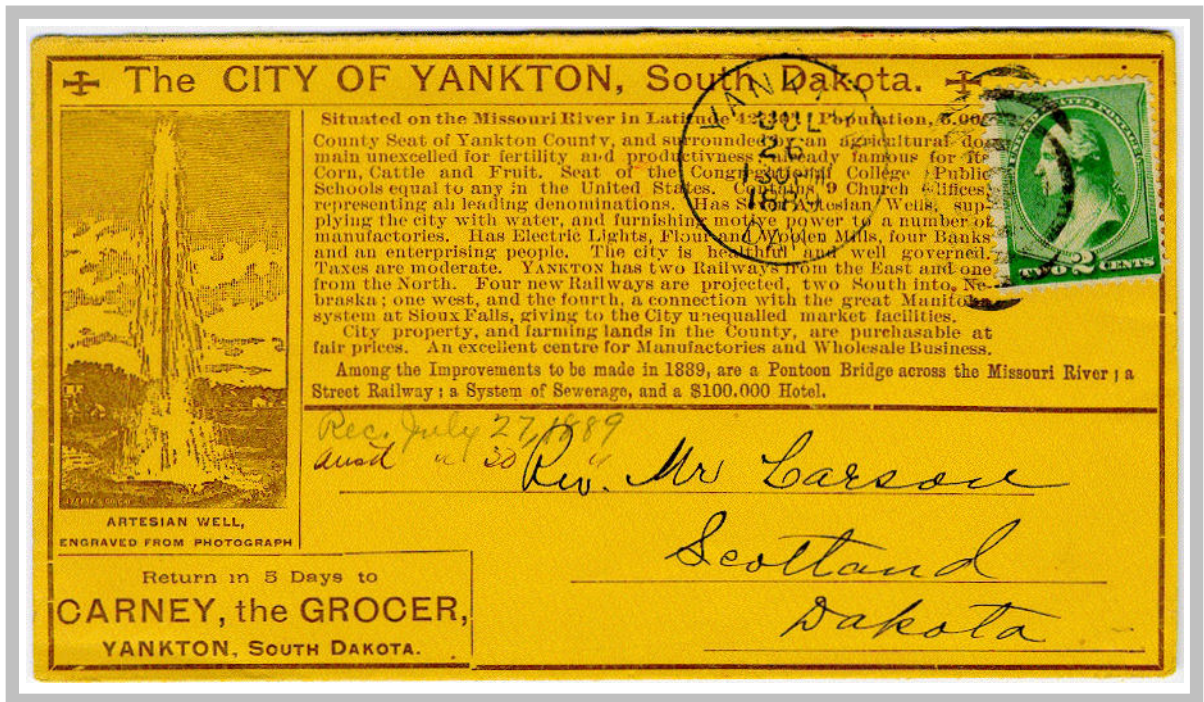 The CITY OF YANKTON, South Dakota.
Situated on the Missouri River in Latitude Population,
County Seat of Yankton County, and surrounded by an agricultural do-
main unexcelled for fertility and productivness, already famous for its
Corn, Cattle and Fruit. Seat of the Congregational College Public
Schools equal to any in the United States. Contains 9 Church Edifices,
representing all leading denominations. Has Artesian Wells, sup-
plying the city with water, and furnishing motive power to a number of
manufactories. Has Electric Lights, Flour and Woolen Mills, four Banks
and an enterprising people. The city is healthful and well governed.
Taxes are moderate. YANKTON has two Railways from the East and one
from the North. Four new Railways are projected, two South into, Ne-
braska; one west, and the fourth, a connection with the great Manitoba
system at Sioux Falls, giving to the City unequalled market facilities.
City property, and farming lands in the County, are purchasable at
fair prices. An excellent centre for Manufactories and Wholesale Business.
Among the Improvements to be made in 1889, are a Pontoon Bridge across the Missouri River; a
Street Railway; a System of Sewerage, and a $100.000 Hotel.
JUL
26
UNITED STATES POSTAGE
TWO 2 CENTS
Rec. July 27, 1889
ansd " 30 "
Rev. Mr Larson
Scotland
Dakota
ARTESIAN WELL,
ENGRAVED FROM PHOTOGRAPH
Return in 5 Days to
CARNEY, the GROCER,
YANKTON, SOUTH DAKOTA.